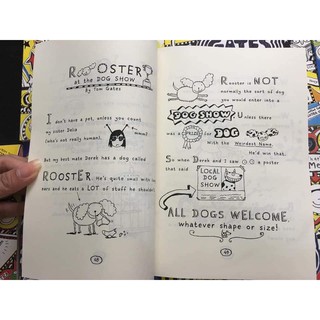 ROOSTER
at the DOG SHOW
By Tom Gates
I don't have a pet, unless you count
my sister Delia
(she's not really human).
But my best mate Derek has a dog called
ROOSTER. He's quite small with
ears and he eats a LOT of stuff he shouldn't
48
Rooster is NOT
normally the sort of dog
you would enter into a
DOG SHOW! Unless there
was a PRIZE for DOG
With the Weirdest Name.
He'd win that.
So when Derek and I saw a poster
that said
LOCAL
DOG
SHOW
ALL DOGS WELCOME,
whatever shape or size!
49